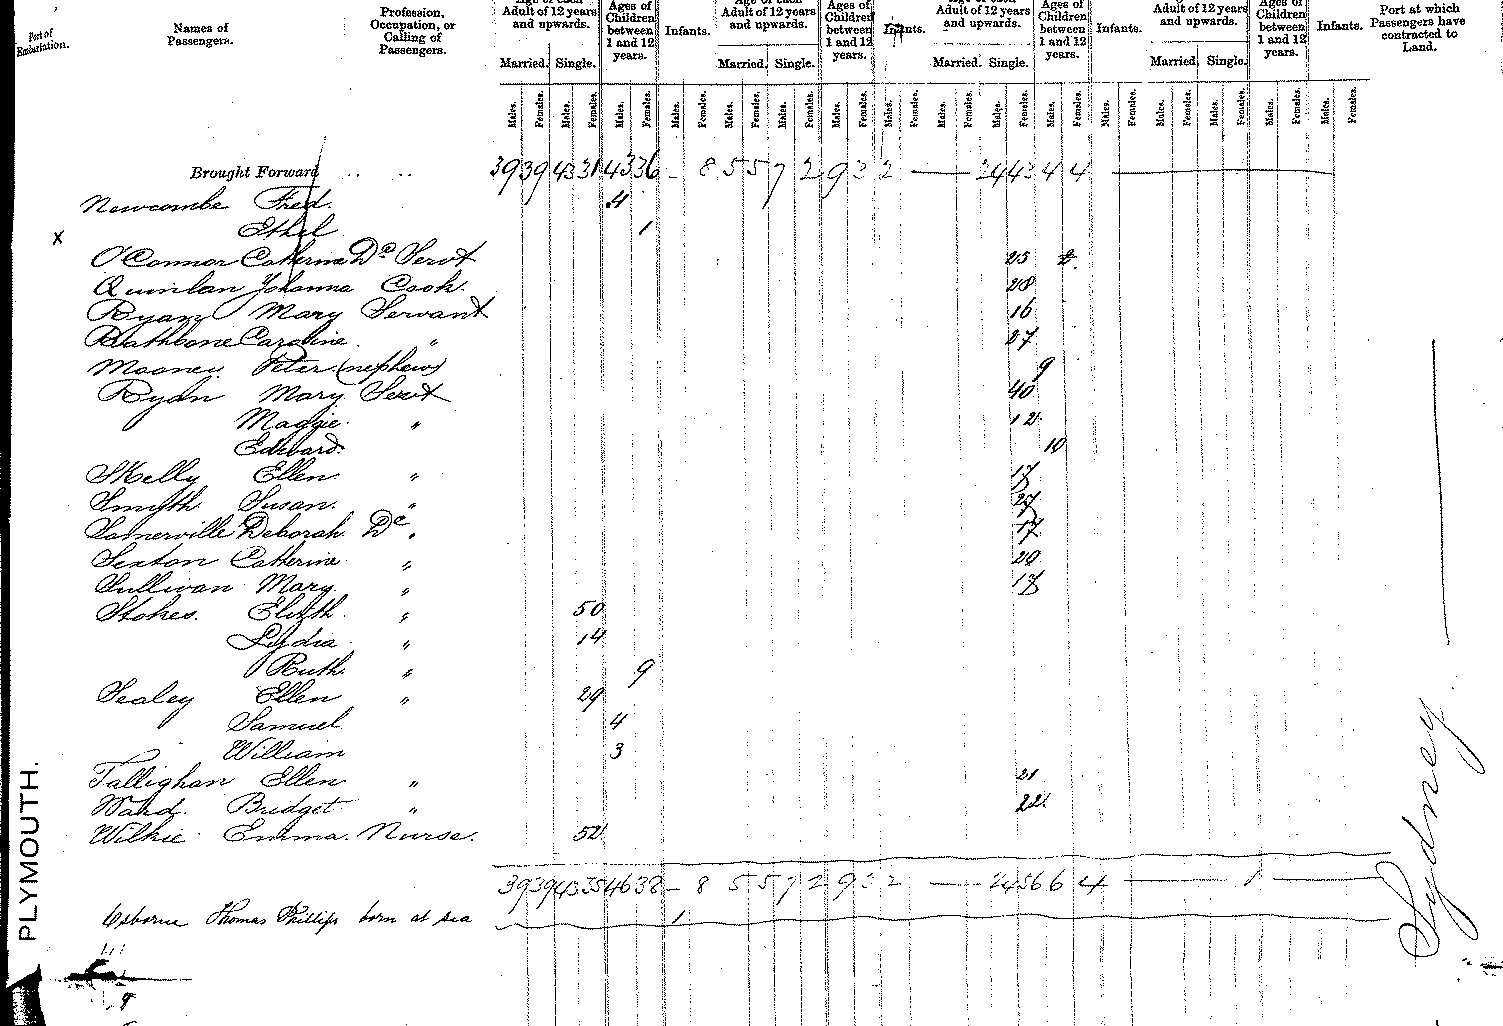 Port of Embarkation.
Names of Passengers.
Profession, Occupation, or Calling of Passengers.
Adult of 12 years and upwards.
Married. Single.
Ages of Children between 1 and 12 years.
Infants.
Adult of 12 years and upwards.
Married. Single.
Ages of Children between 1 and 12 years.
Infants.
Adult of 12 years and upwards.
Married. Single.
Ages of Children between 1 and 12 years.
Infants.
Adult of 12 years and upwards.
Married. Single.
Ages of Children between 1 and 12 years.
Infants.
Port at which Passengers have contracted to Land.
Males. Females. Males. Females. Males. Females. Males. Females. Males. Females. Males. Females. Males. Females. Males. Females. Males. Females. Males. Females. Males. Females. Males. Females. Males. Females. Males. Females. Males. Females. Males. Females.
Brought Forward .. .. 39 39 43 31 43 36 - 8 5 5 7 2 9 3 2 — 2 44 43 4 4
Newcombe Fred. 4
x Ethel 1
O'Connor Catherine Do Servt 25
Quinlan Johanna Cook. 28
Ryan Mary Servant 16
Rathbone Caroline " 27
Mooney Peter (nephew) 9
Ryan Mary Servt 40
Maggie " 12
Edward 10
Skelly Ellen " 17
Smyth Susan. " 27
Somerville Deborah Do. 17
Sexton Catherine " 29
Sullivan Mary " 17
Stokes. Elizth " 50
Lydia " 14
Ruth " 9
Sealey Ellen " 29
Samuel 4
William 3
Tallighan Ellen " 21
Ward. Bridget " 22
Wilkie Emma. Nurse. 52
39 39 43 35 46 38 - 8 5 5 7 2 9 3 2 — 2 4 56 6 4 — 1 —
Osborne Thomas Phillips born at sea 1
PLYMOUTH.
Sydney